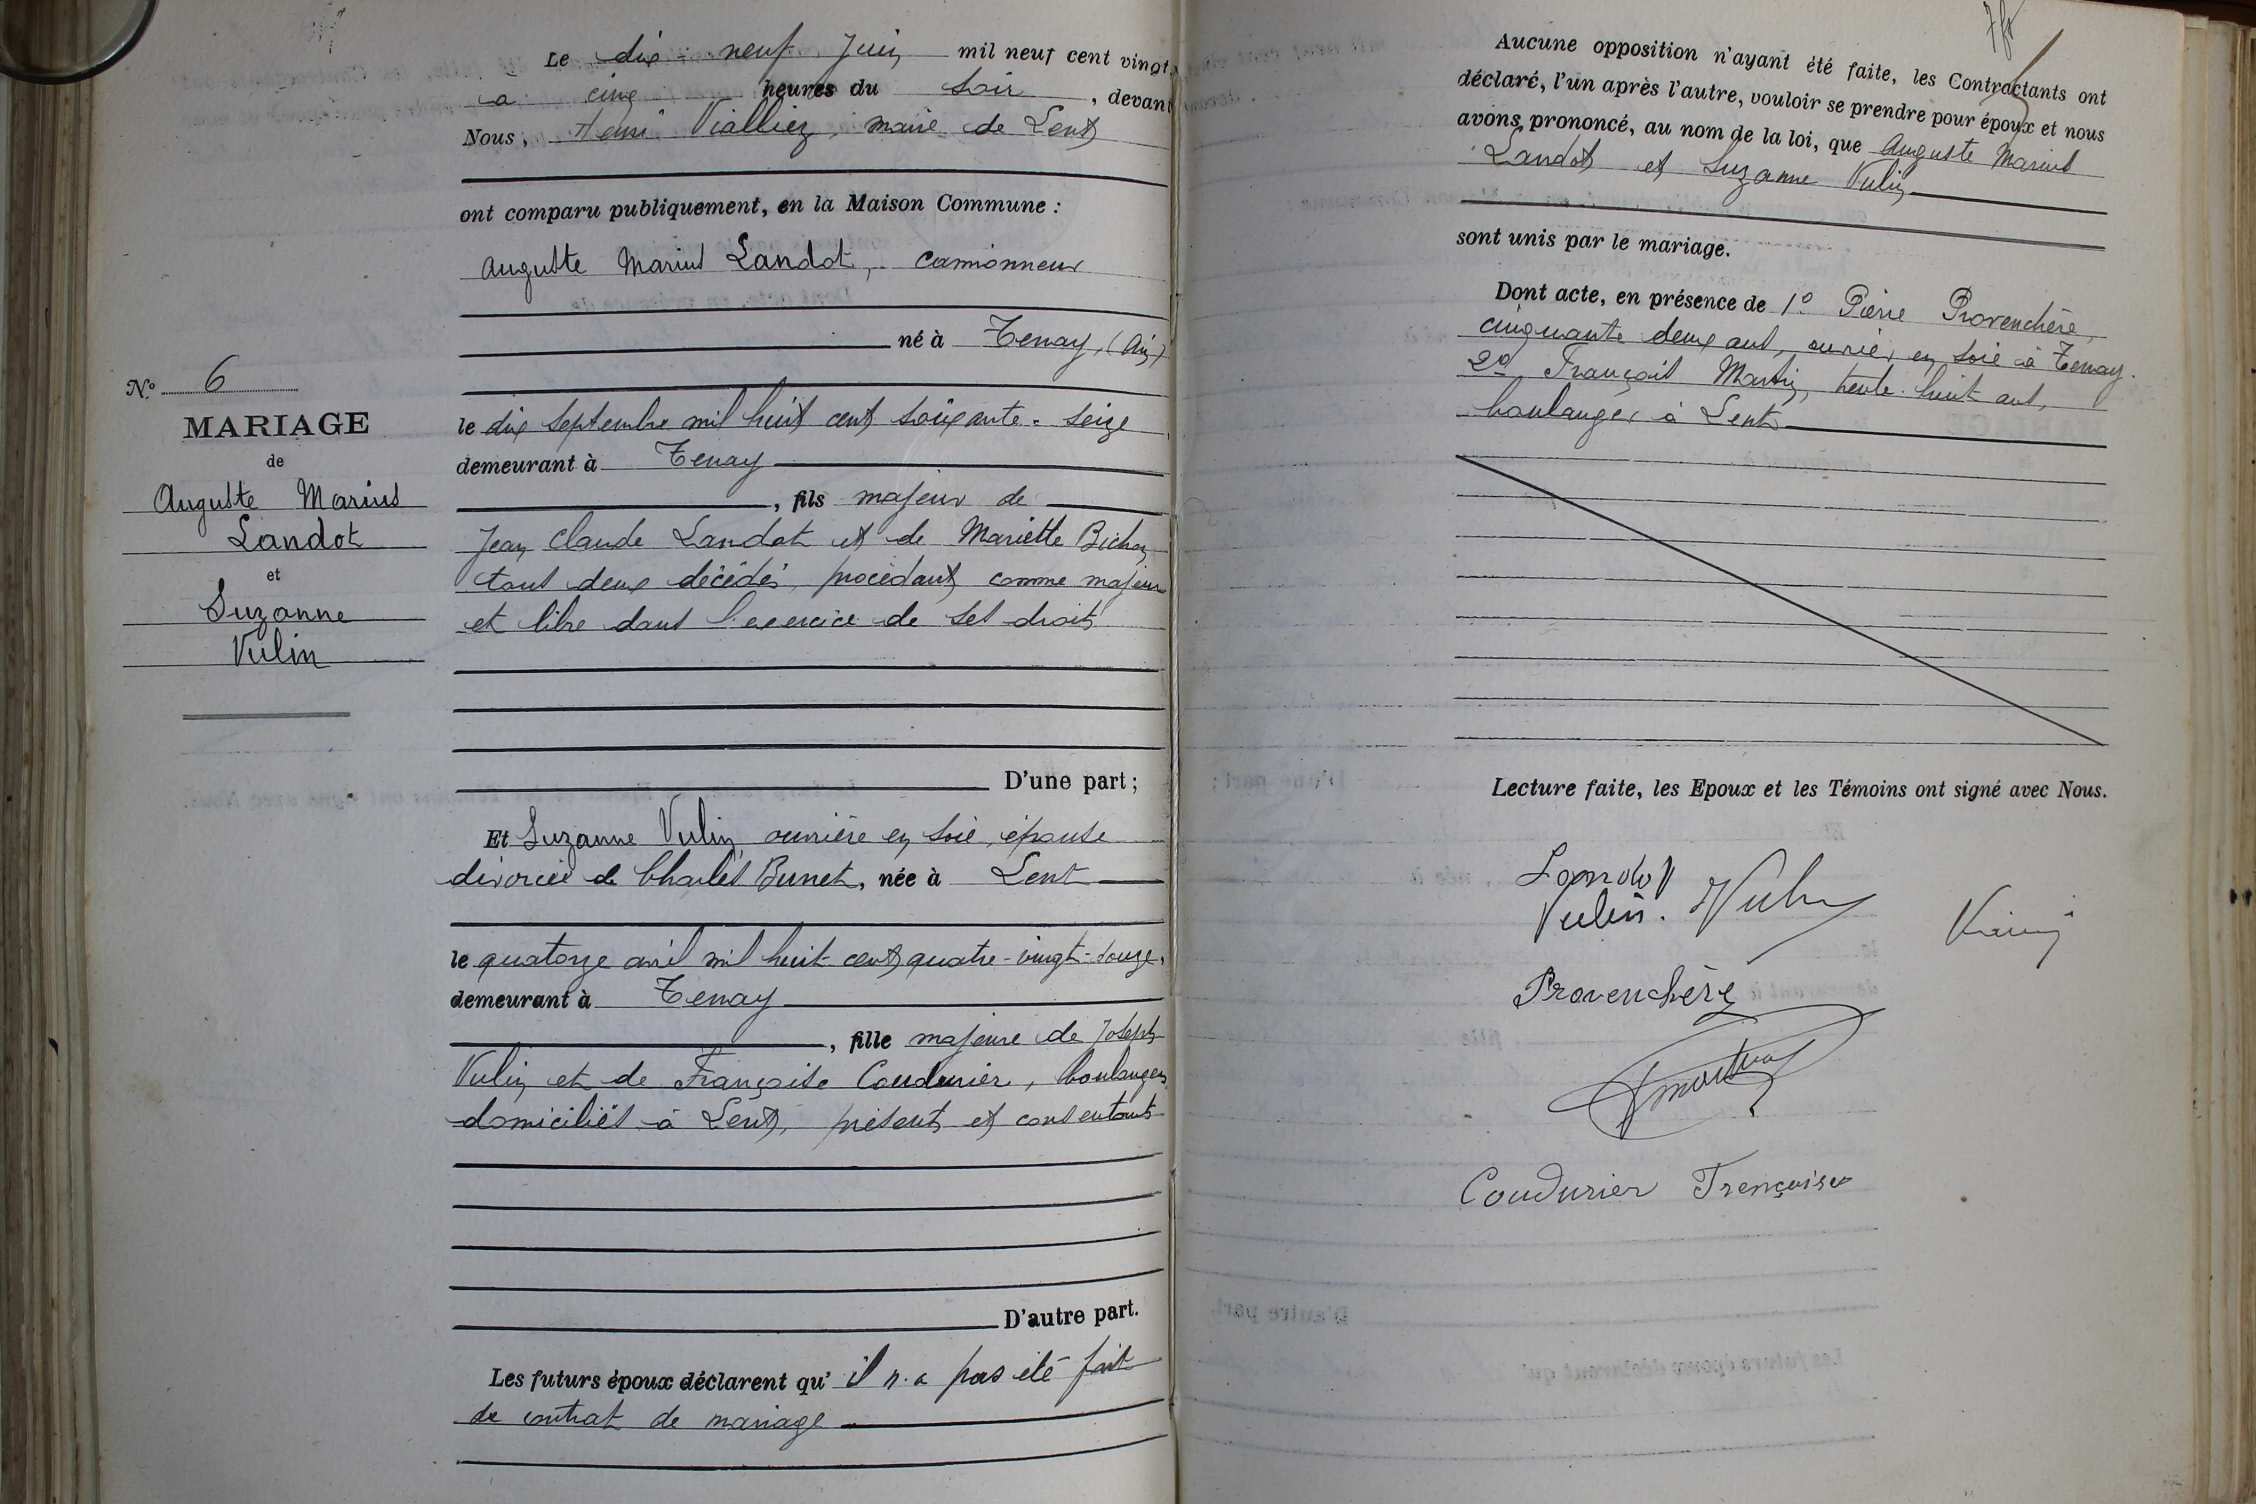 Le dix-neuf Juin mil neuf cent vingt
à cinq heures du soir, devant
Nous, Henri Viallier, maire de Lent
ont comparu publiquement, en la Maison Commune :
Auguste Marius Landot, camionneur
né à Tenay, (Ain)
le dix septembre mil huit cent soixante-seize
demeurant à Tenay
, fils majeur de
Jean Claude Landot et de Mariette Bichon
tous deux décédés, procédant comme majeur
et libre dans l'exercice de ses droits
D'une part ;
Et Suzanne Vulin, ouvrière en soie, épouse
divorcée de Charles Bunet, née à Lent
le quatorze avril mil huit cent quatre-vingt-douze,
demeurant à Tenay
, fille majeure de Joseph
Vulin et de Françoise Coudurier, boulangers
domiciliés à Lent, présents et consentants
D'autre part.
Les futurs époux déclarent qu'il n'a pas été fait
de contrat de mariage
No 6
MARIAGE
de
Auguste Marius
Landot
et
Suzanne
Vulin
7 fr
Aucune opposition n'ayant été faite, les Contractants ont
déclaré, l'un après l'autre, vouloir se prendre pour époux et nous
avons prononcé, au nom de la loi, que Auguste Marius
Landot et Suzanne Vulin
sont unis par le mariage.
Dont acte, en présence de 1° Pierre Provenchère,
cinquante deux ans, ouvrier en soie à Tenay.
2° François Martin, trente-huit ans,
boulanger à Lent
Lecture faite, les Epoux et les Témoins ont signé avec Nous.
Landot
Vulin. Vulin
Provenchère
Coudurier Françoise